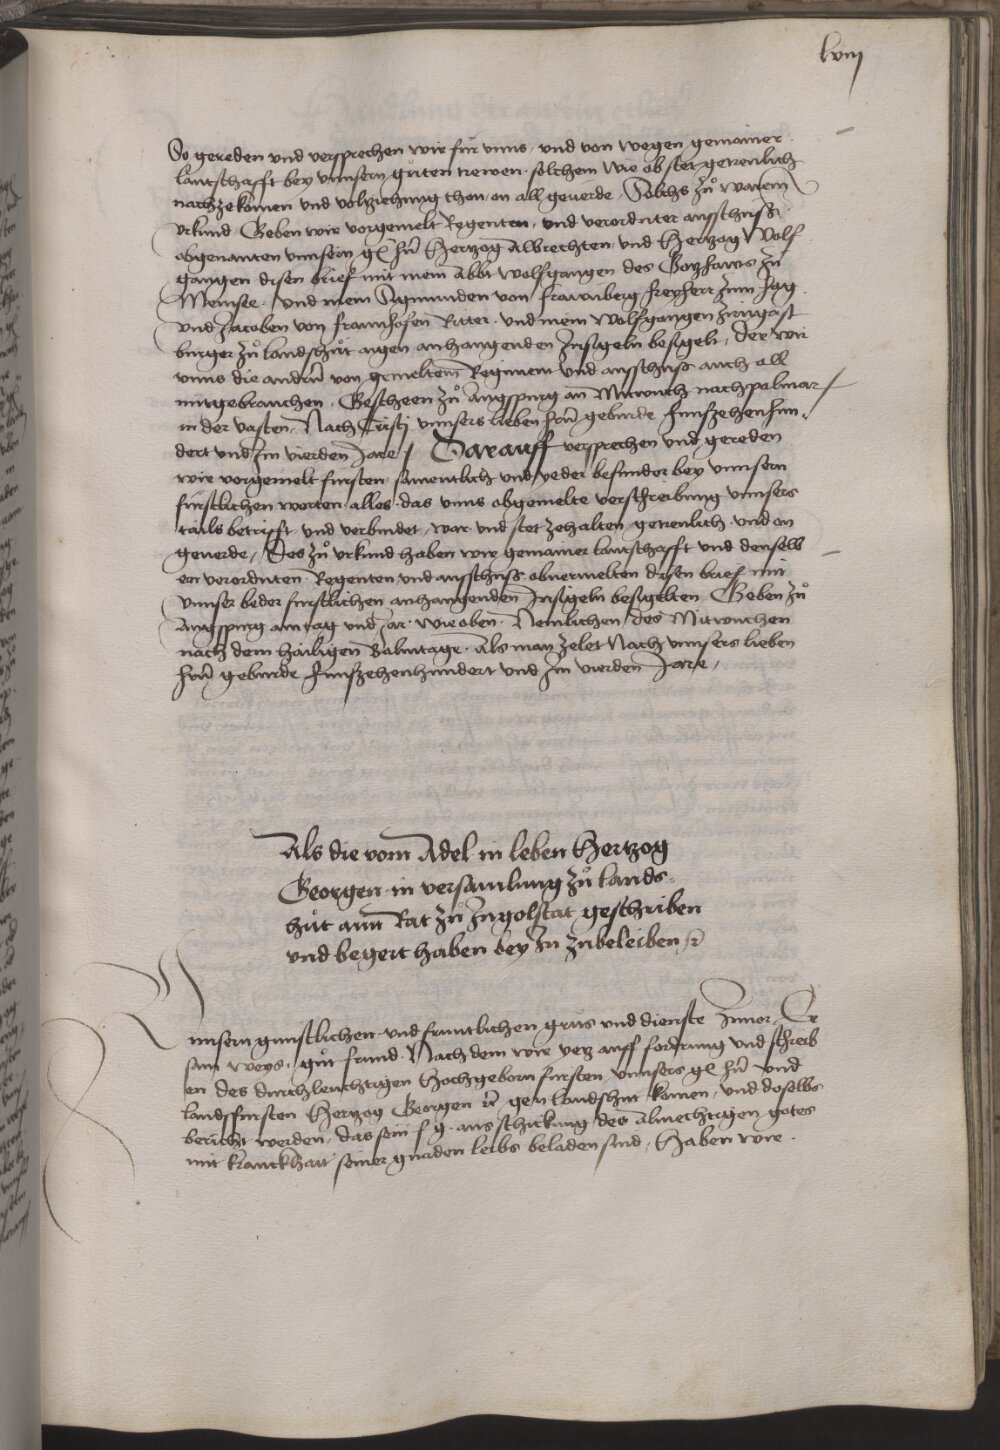 lviij
So gereden und versprechen wir für unns, und von wegen gemainer
lantschafft bey unnsern gůten trewen, solchem wie obstet getreulich
nachzekomen und volziehung thon, on all geuerde, Solchs zů warem
urkund, Geben wir vorgemelt Regenten, und verordnter ausschuss,
obgenanten unnsern gn hrn Hertzog Albrechten, und Hertzog Wolf
gangen disen brief mit mein Abbt Wolfgangen des Gotzhaws zu
Mennsee, und mein Sigmunden von Frawnberg freyherr zum Hag
und Jacoben von Fraunhofen Ritter, und mein Wolfgangen Zeingast
burger zů Landshůt aigen anhangenden Innsigeln besigelt, der wir
unns die andern von gemeltem Regiment und ausschuss auch all
mitgebrauchen, Bescheen zů Augspurg an Mitwuch nach palmar
in der vasten, Nach Cristj unnsers lieben hrn geburde funfzehenhun,
dert und im vierden Jare / Darauff versprechen und gereden
wir vorgemelt fursten, samentlich und yeder besunder bey unnsern
fürstlichen worten, alles das unns obgemelte verschreibung unnsers
tails betrifft und verbindet, war und stet zehalten, getreulich und on
geuerde, Des zů urkund haben wir gemainer lantschafft und denselb
en verordnten Regenten und ausschuss obuermelten disen brief mit
unnser beder furstlichen anhangenden Insigeln besigelten Geben zů
Augspurg am tag und Jar wie oben, Nemlichen des Mitwuchen
nach dem hailigen Palmtage, Als man zelet Nach unnsers lieben
hrn geburde Funfzehenhundert und Im vierden Jare,
Als die vom Adel in leben Hertzog
Georgen in versamlung zů Lands,
hůt ainn Rat zů Ingolstat geschriben
und begert haben bey In zubeleiben ꝛc
Unnsern gunstlichen und fruntlichen grus und dienste Zuuor, Er
sam weys, gůt frund, Nach dem wir yetz auff fordrung und schreib
en des durchleuchtigen Hochgeborn fursten unnsers gn hrn und
landsfursten Hertzog Georgen ꝛc gen Landshut komen, und doselbs
bericht werden, das sein f g aus schickung des almechtigen gotes
mit kranckhait seiner gnaden leibs beladen sind, Haben wir